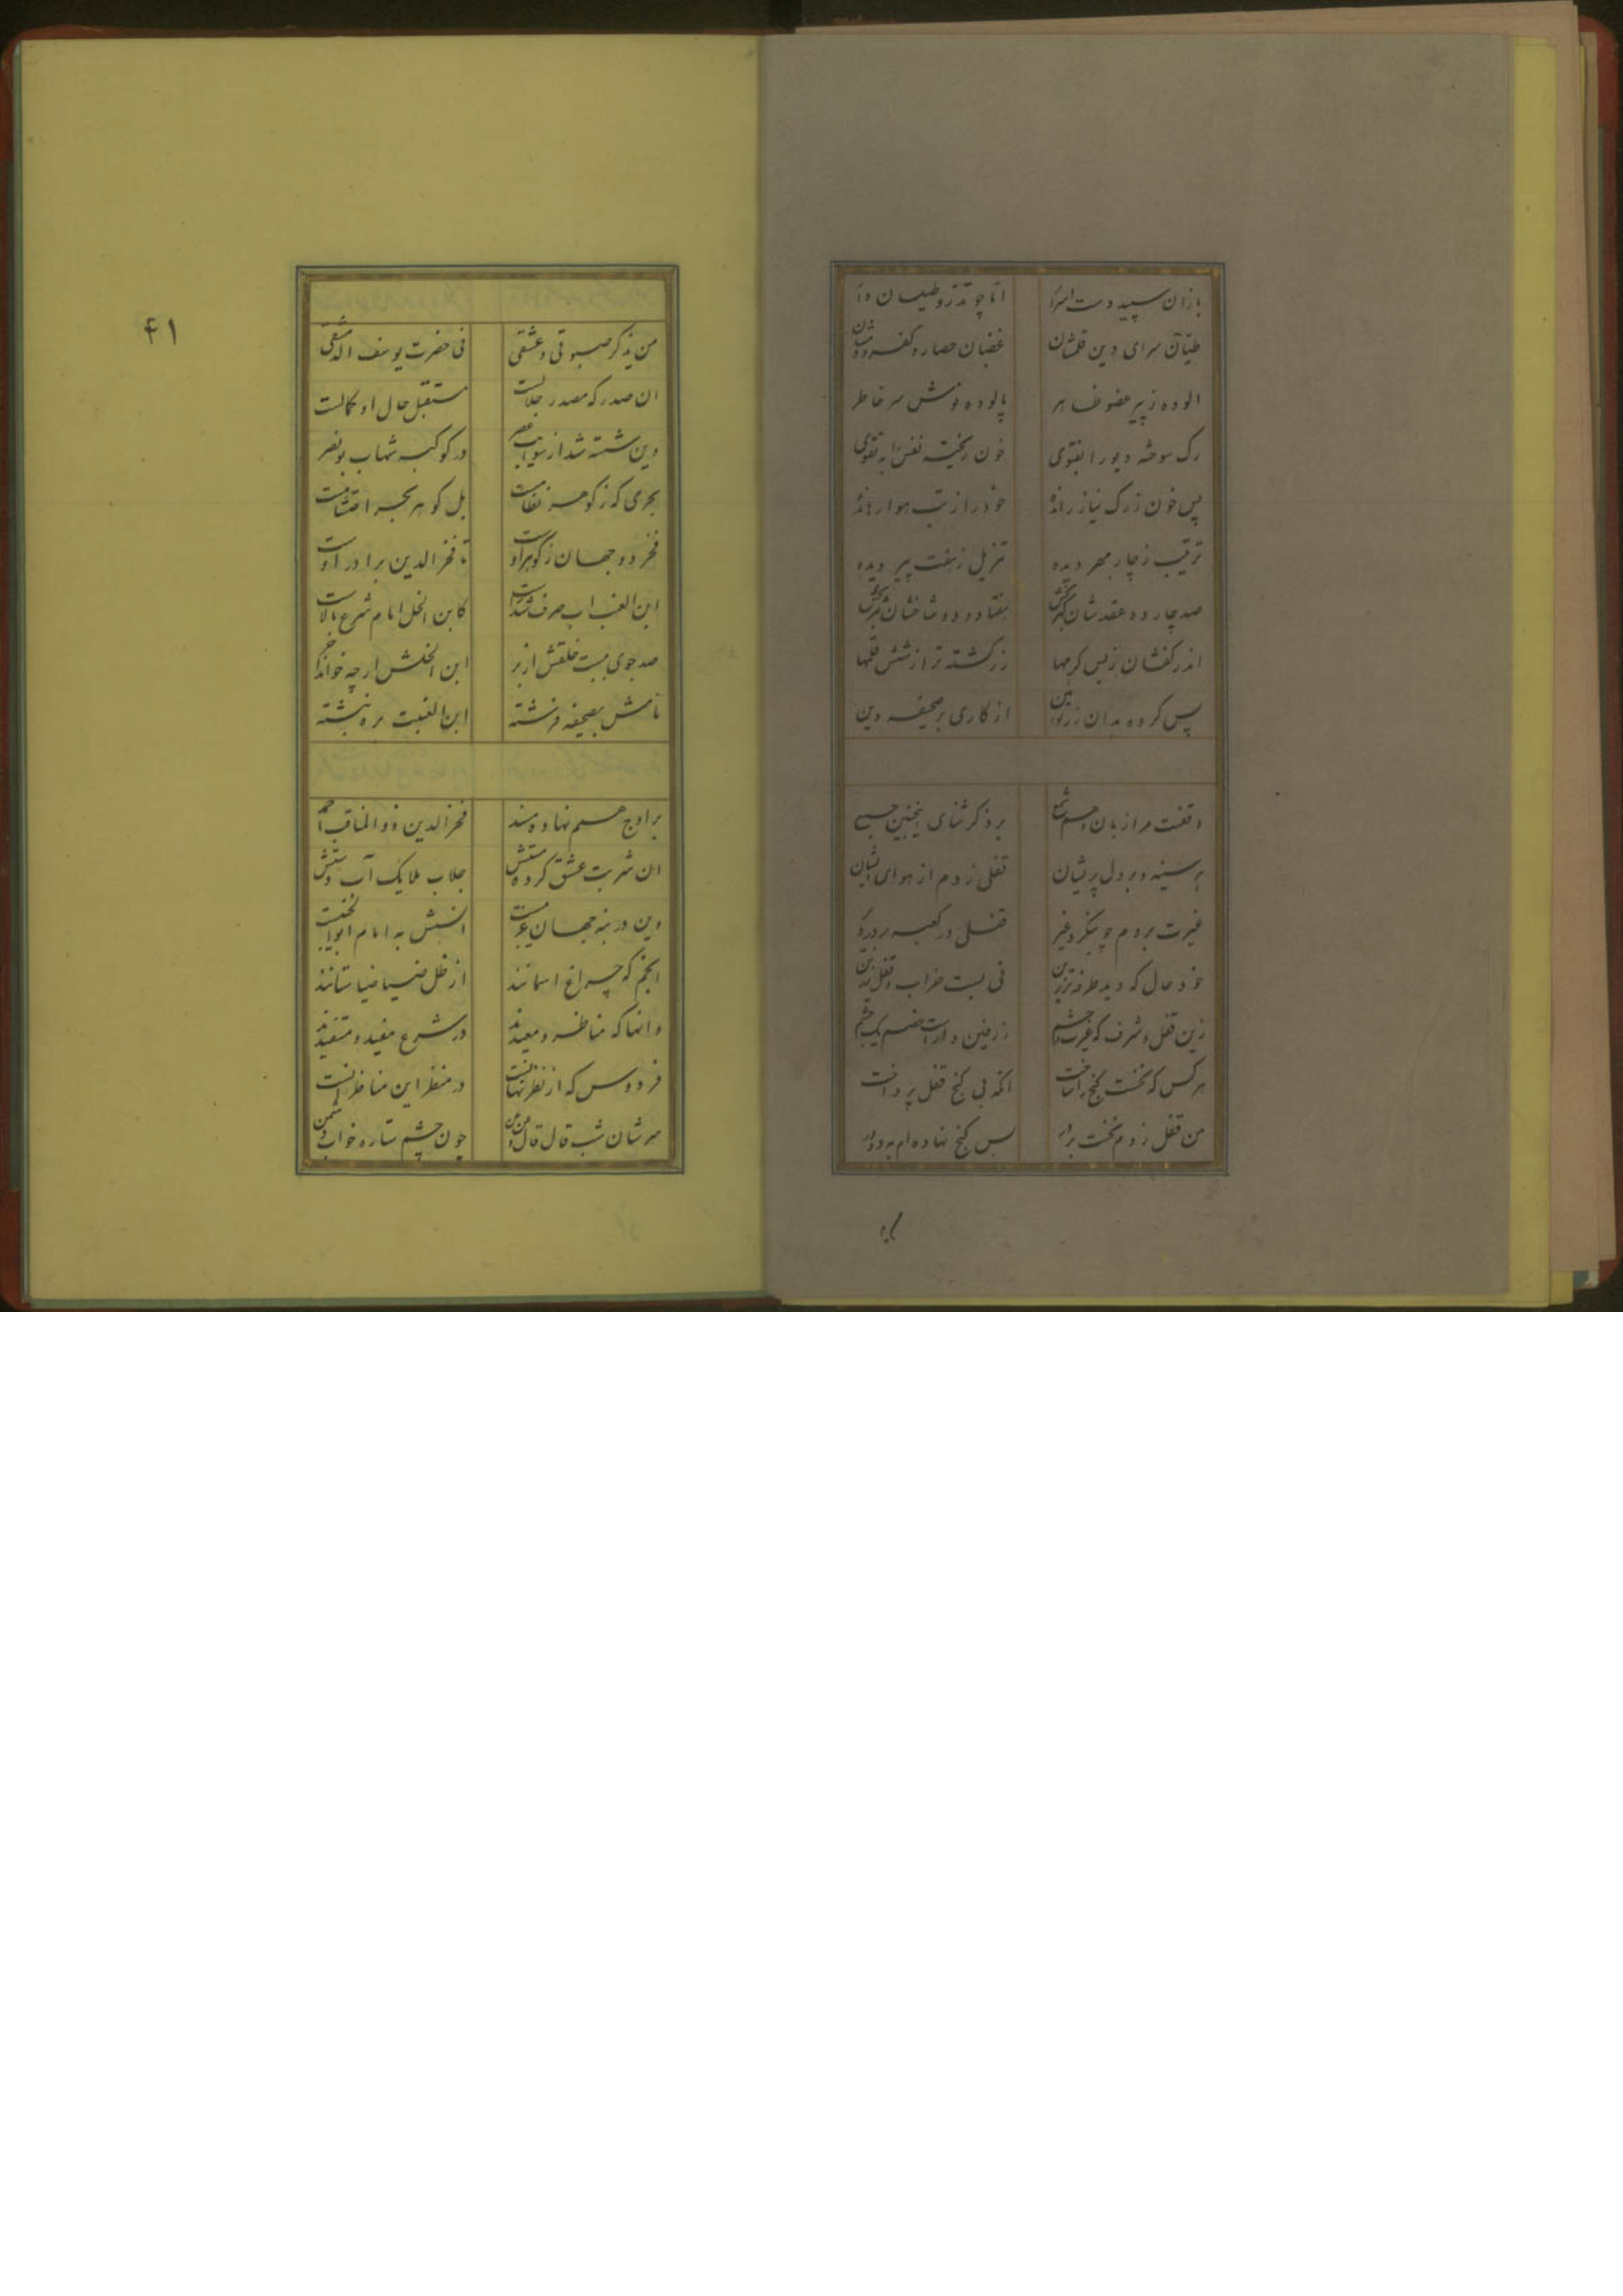 بازان سپید دست اسرا اما چو تذرو طیلسان دا
طیان سرای دین قلمشان غضبان حصار کفر دمشان
الوده ز پیر عضو ظاهر پالوده نوش سر خاطر
رک سوخته دیو را بقوی خون ریخته نفس را بتقوی
پس خون زرک نیاز رانده خود را ز تب هوا رهانده
ترتیب ز چار مهر دیده تنزیل ز هفت پیر دیده
صد چار ده عقدشان هفتاد و دو شاخشان
اندر کفشان ز بس کرمها زر کشته تراز شش قلمها
پس کرده بدان زر از کاری بر صحیفه دین
وقفست مرا زبان و هم بر ذکر ثنای اینچنین
بر سینه و بر دل پریشان قفلی زدم از هوای ایشان
غیرت بردم چو بنکرد غیر قفلی در کعبه بر در
خود حال که دید طرفه تر زین نی بست خراب و قفل
زین قفل و شرف که زرفین دارست خصم یک چشم
هر کس که نخست کنج را ساخت انکه بی کنج قفل پرداخت
من قفل زدم نخست بر در بس کنج نهاده ام به
۴۱
من یذکر صبوتی و عشقی فی حضرت یوسف الدمشقی
ان صدر که مصدر جلالست مستقبل حال او کمالست
دین شسته شد از در کوکبه شهاب بو نصر
بحری که ز کوهر نظامست بل کوهر بحر احتشامست
فخر دو جهان ز کوهر اوست تا فخر الدین برادر اوست
ابن الغراب صرف کابن النحل امام شرع
صد جوی ببست خلقش از بر ابن الخلش ار چه خواند
نامش بصحیفه فرشته ابن الغیث بره نبشته
بر اوج همم نهاده مسند فخر الدین ذو المناقب احمد
ان شربت عشق کرده مستش جلاب ملایک آب دستش
وین در بنه جهان انسش به امام ابو
انجم که چراغ اسمانند از ظل ضیا ضیا ستانند
وانها که مناظر و معیدند در شرع مفید و مستفیدند
فردوس که از نظر نهانست در منظر این مناظرانست
سرشان شب قال قال چون چشم ستاره خواب دشمن